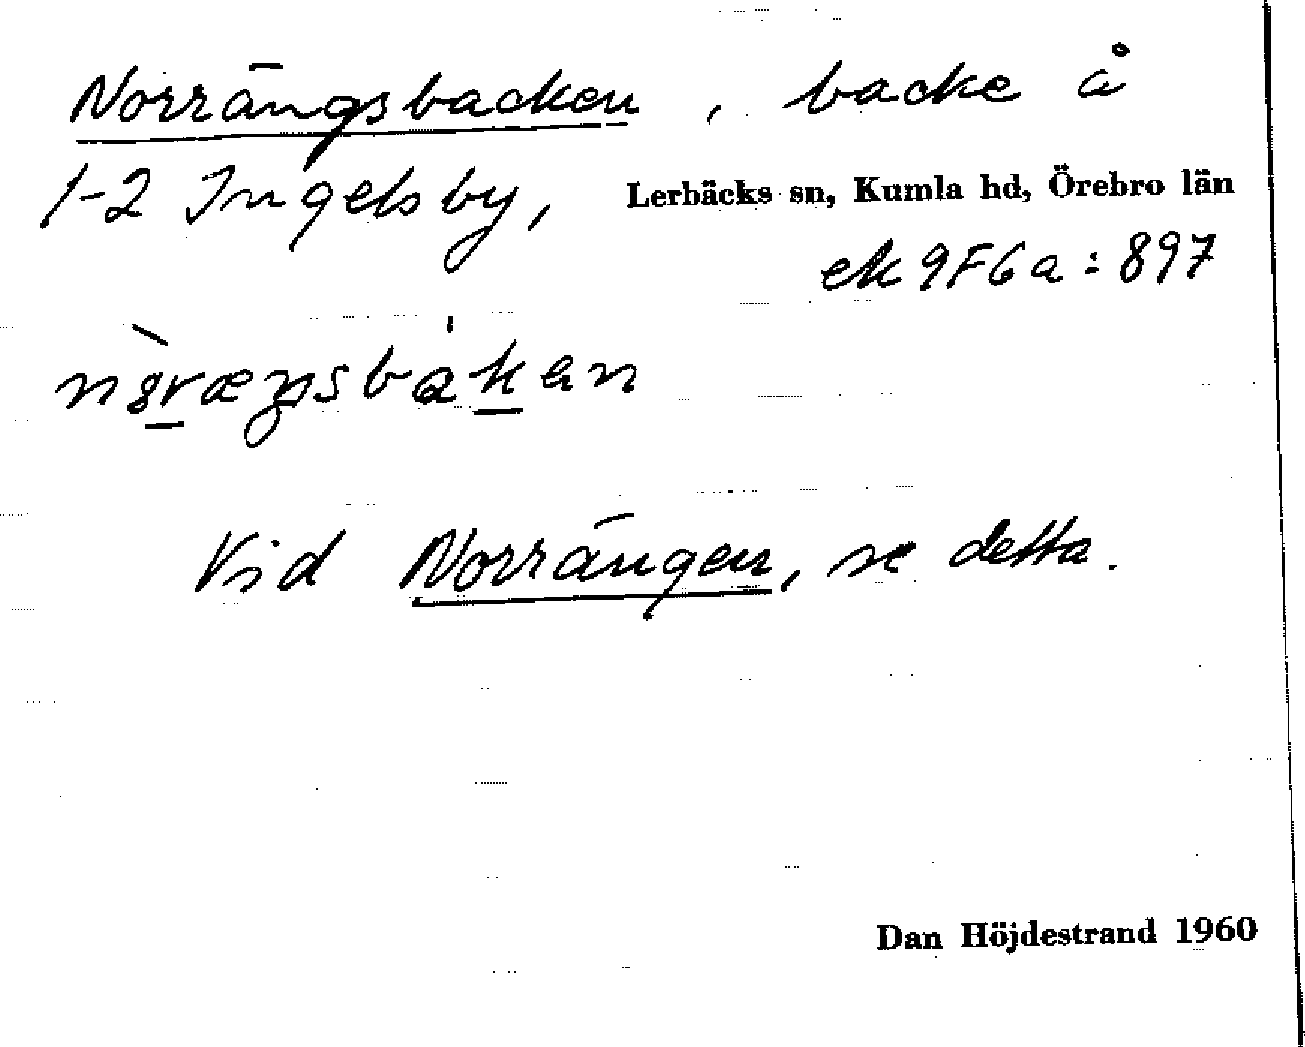 Norrängsbacken, backe å
1-2 Ingelsby, Lerbäcks sn, Kumla hd, Örebro län
ek 9F6a:897
Vid Norrängen, se detta.
Dan Höjdestrand 1960